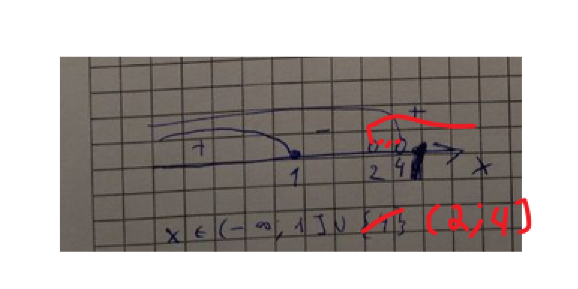 + - +
1 2 4 x
x ∈ (-∞; 1] ∪ {1} (2; 4]